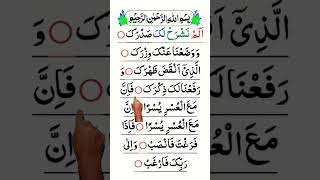 بِسْمِ اللّٰهِ الرَّحْمٰنِ الرَّحِيْمِ
اَلَمْ نَشْرَحْ لَكَ صَدْرَكَ
وَوَضَعْنَا عَنْكَ وِزْرَكَ
الَّذِيْۤ اَنْقَضَ ظَهْرَكَ وَ
رَفَعْنَا لَكَ ذِكْرَكَ فَاِنَّ
مَعَ الْعُسْرِ يُسْرًا اِنَّ
مَعَ الْعُسْرِ يُسْرًا فَاِذَا
فَرَغْتَ فَانْصَبْ وَاِلٰى
رَبِّكَ فَارْغَبْ